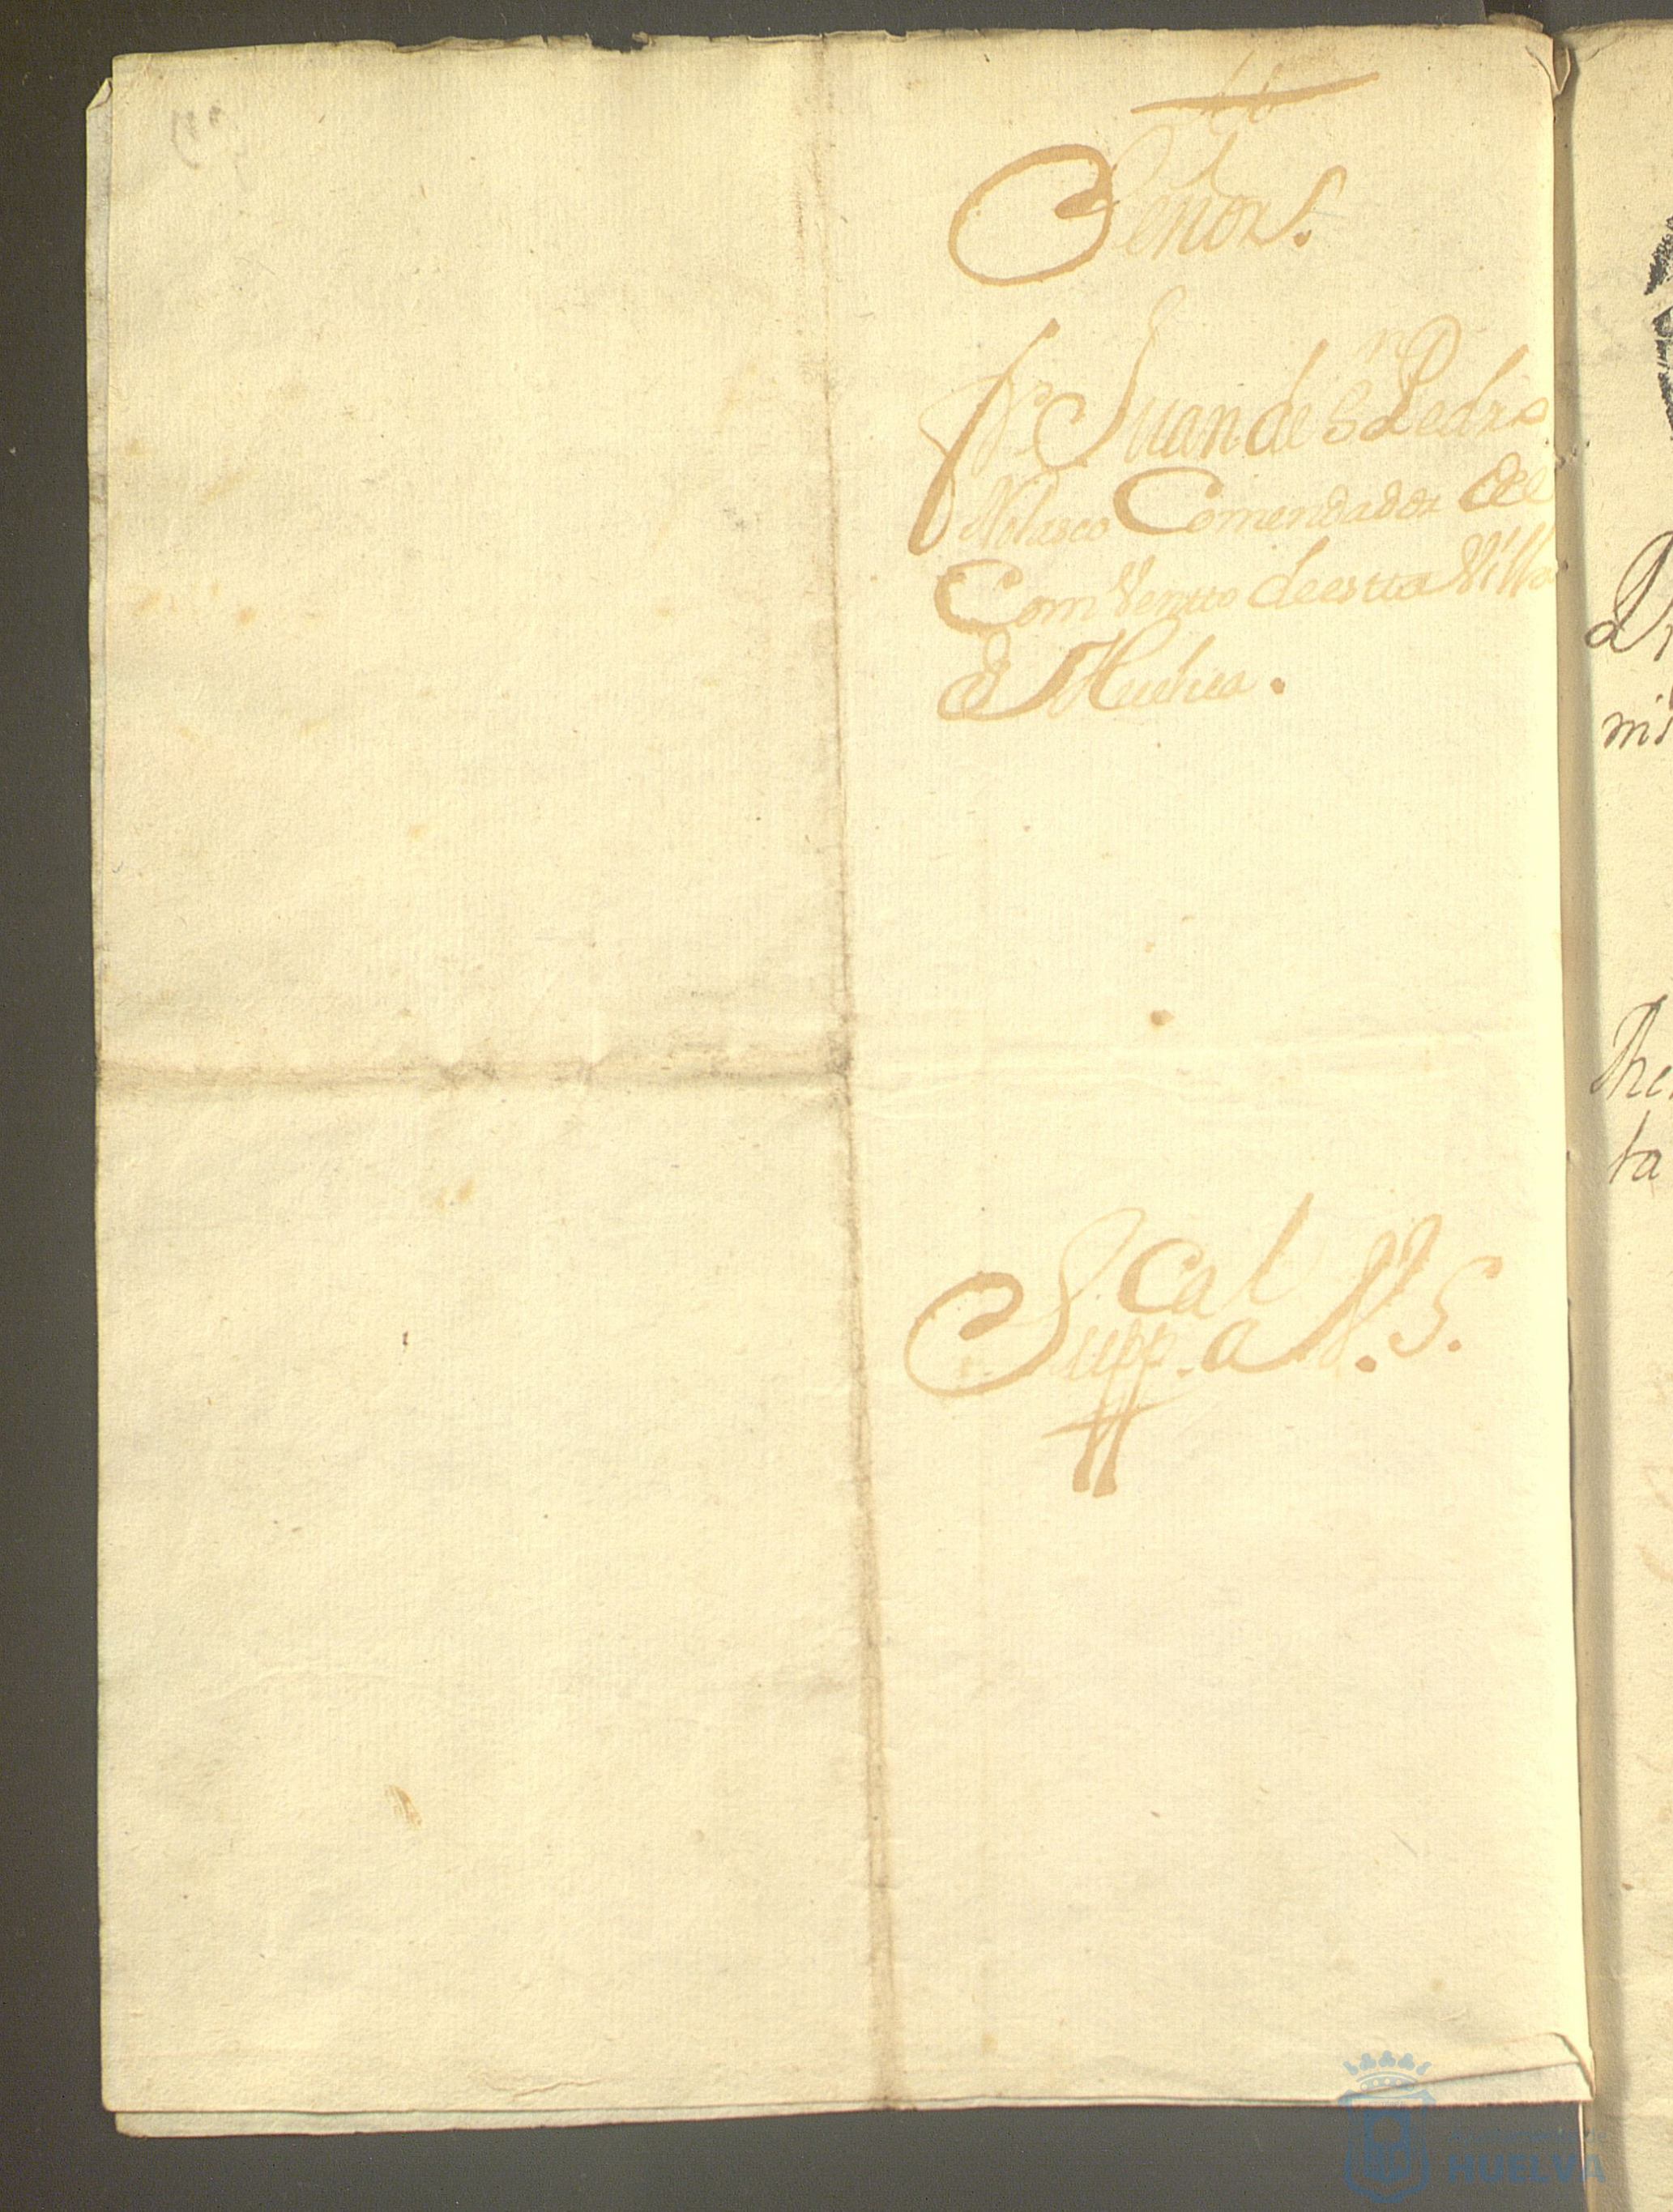 Señor.
Fr Juan de Sn Pedro
Nolasco Comendador del
Comvento deesta Villa
de Huelva.
Suppca a V. S.
Di
mi
ta
HUELVA